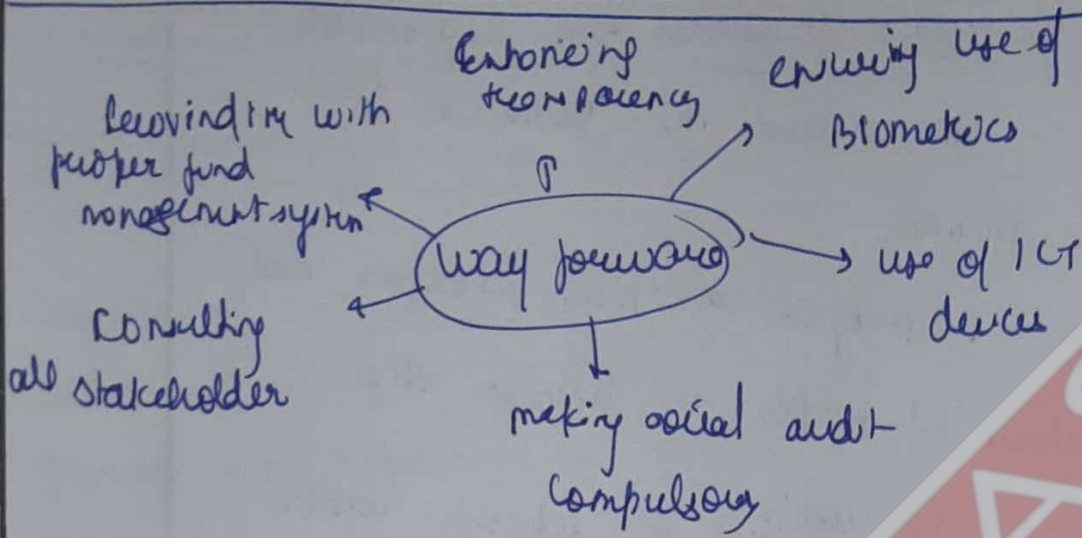 Enhancing
transparency
ensuring use of
Biometrics
Providing with
proper fund
management system
way forward
use of ICT
devices
Consulting
all stakeholder
making social audit
compulsory